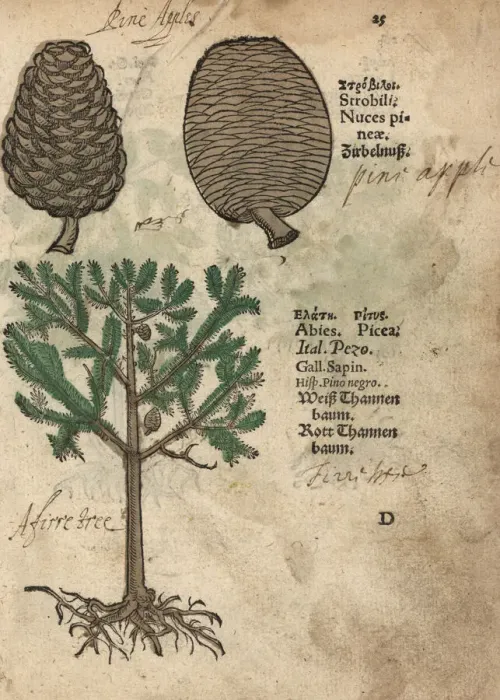 Pine Apples
25
Στρόβιλοι.
Strobili;
Nuces pi=
neæ.
Zirbelnuß.
pine apple
Ελάτη. πίτυς.
Abies. Picea;
Ital. Pezo.
Gall. Sapin.
Hisp. Pino negro.
Weiß Thannen
baum.
Rott Thannen
baum.
Firre
A firre tree
D